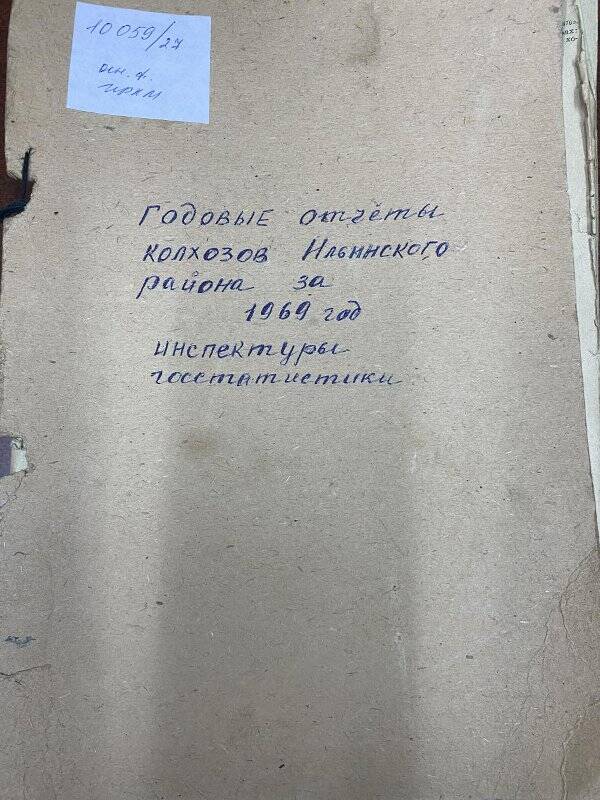 10059/27
осн. ф.
ИРКМ
Годовые отчёты
колхозов Ильинского
района за
1969 год
инспектуры
госстатистики